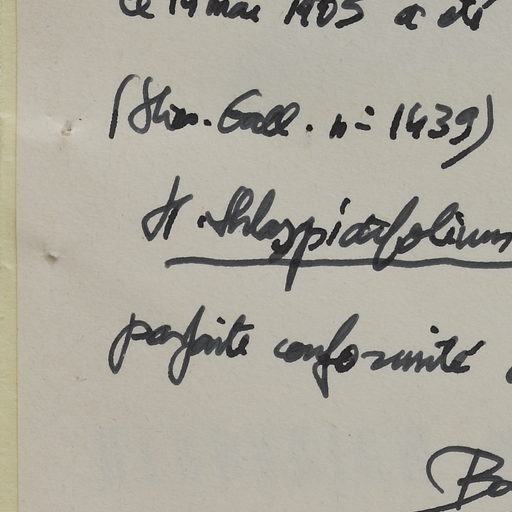 Ce 14 mai 1905 a été
(Hier. Gall. n° 1439)
H. thlaspidifolium
parfaite conformité
Bo